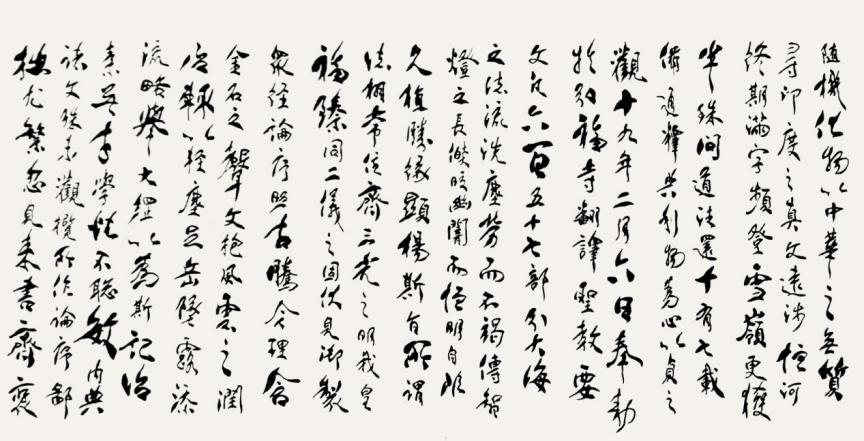 随機化物以中華之無質
尋印度之真文遠涉恒河
終期滿字頻登雪嶺更獲
半珠問道法還十有七載
備通釋典利物為心以貞之
觀十九年二月六日奉勅
於弘福寺翻譯聖教要
文凡六百五十七部引大海
之法流洗塵勞而不竭傳智
燈之長焰皎幽闇而恒明自非
久植勝緣顯揚斯旨所謂
法相常住齊三光之明我皇
福臻同二儀之固伏見御製
眾經論序照古騰今理含
金石之聲文抱風雲之潤
治輒以輕塵足岳墜露添
流略舉大綱以為斯記治
素無才學性不聰敏內典
諸文殊未觀攬所作論序鄙
拙尤繁忽見來書齊褒